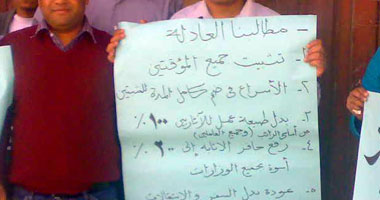 - مطالبنا العادلة
١- تثبيت جميع المؤقتين
٢- الأسراع فى ضم كامل المدة للمثبتين
٣- بدل طبيعة عمل للآثاريين ١٠٠٪
من أساسى الراتب (وجميع العاملين)
٤- رفع حافز الاثابه إلى ٢٠٠٪
أسوة بجميع الوزارات
٥- عودة بدل السفر و